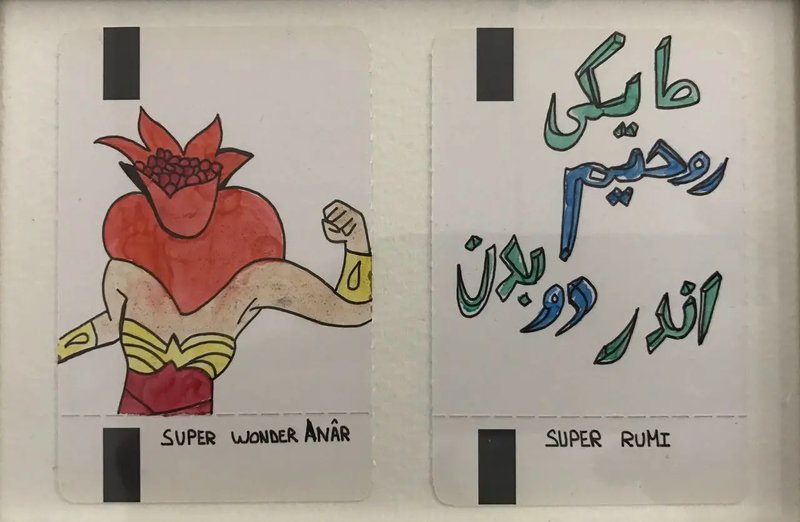 SUPER WONDER ANÂR
ما یکی
روحیم
اندر دو بدن
SUPER RUMI